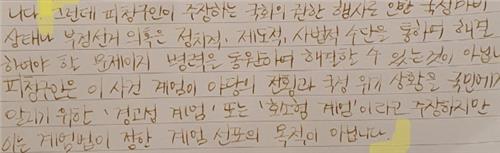 니다. 그런데 피청구인이 주장하는 국회의 권한 행사로 인한 국정마비
상태나 부정선거 의혹은 정치적, 제도적, 사법적 수단을 통하여 해결
하여야 할 문제이지 병력을 동원하여 해결할 수 있는 것이 아닙니
피청구인은 이 사건 계엄이 야당의 전횡과 국정 위기 상황을 국민에
알리기 위한 '경고성 계엄' 또는 '호소형 계엄'이라고 주장하지만
이는 계엄법이 정한 계엄 선포의 목적이 아닙니다.